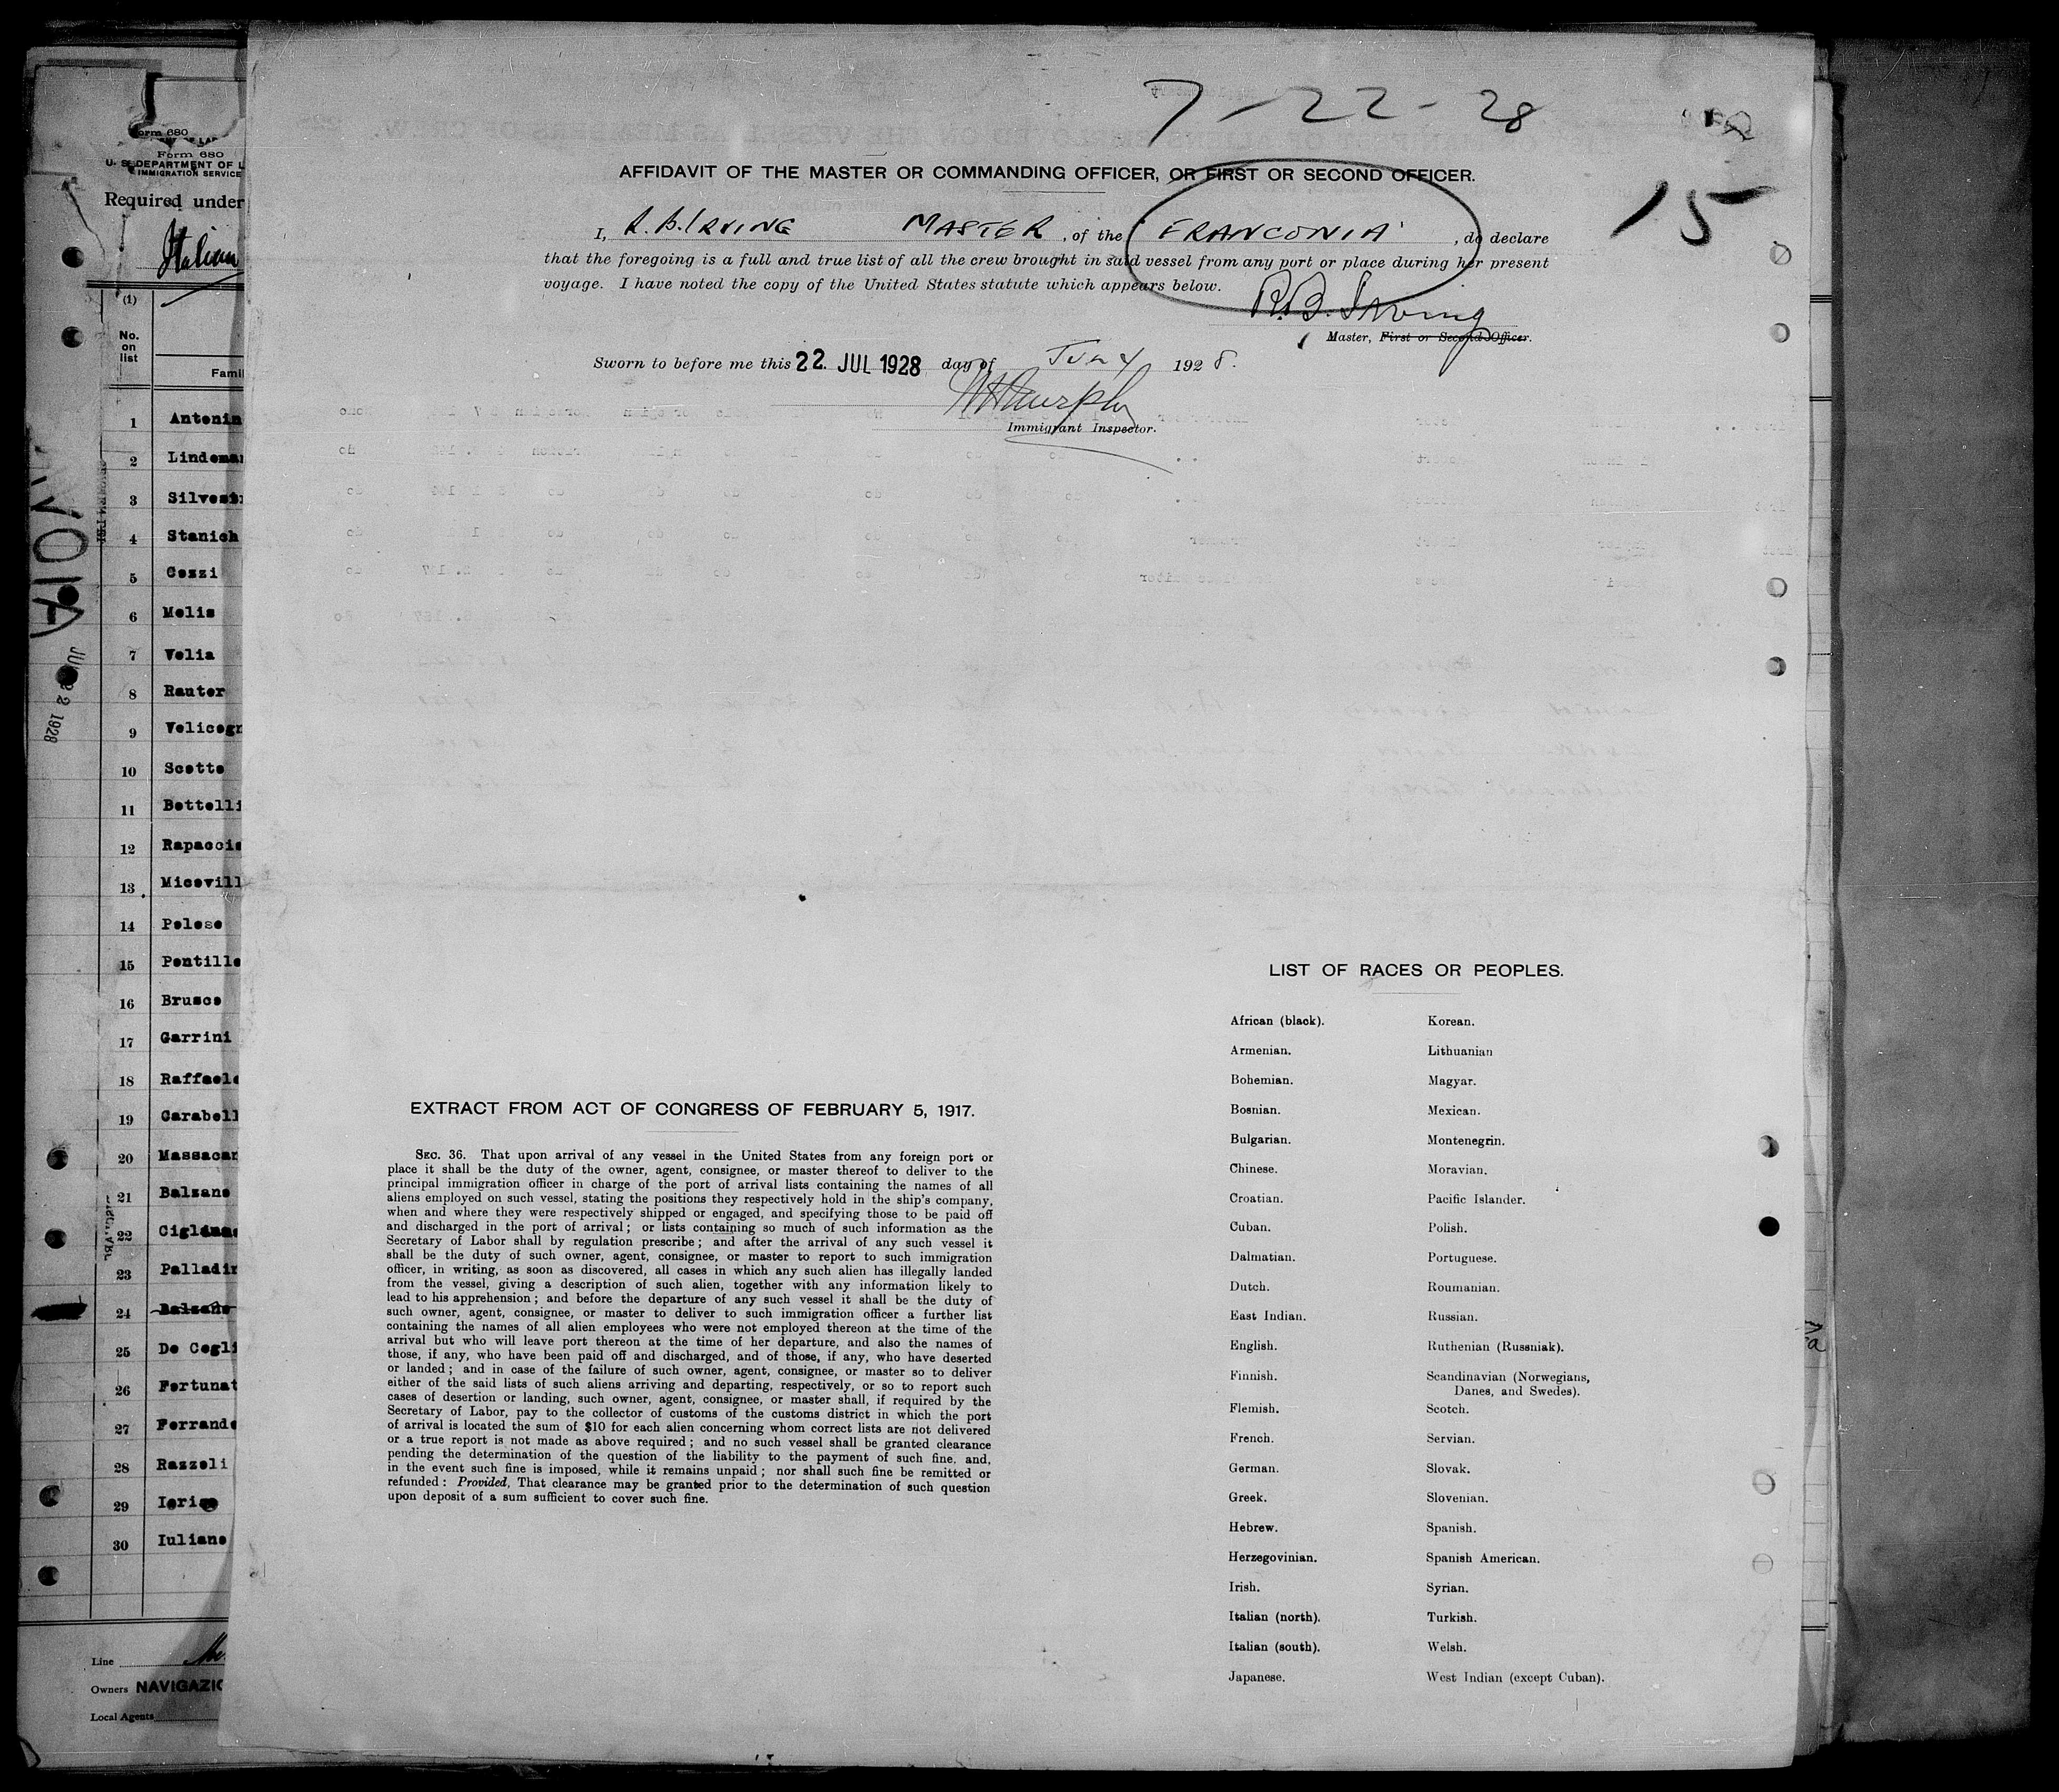 7-22-28
15
AFFIDAVIT OF THE MASTER OR COMMANDING OFFICER, OR FIRST OR SECOND OFFICER.
I, R.B. IRVING MASTER, of the 'FRANCONIA', do declare
that the foregoing is a full and true list of all the crew brought in said vessel from any port or place during her present
voyage. I have noted the copy of the United States statute which appears below.
R.B. Irving
Master, First or Second Officer.
Sworn to before me this 22 JUL 1928 day of July 1928.
Murphy
Immigrant Inspector.
LIST OF RACES OR PEOPLES.
African (black). Korean.
Armenian. Lithuanian
Bohemian. Magyar.
Bosnian. Mexican.
Bulgarian. Montenegrin.
Chinese. Moravian.
Croatian. Pacific Islander.
Cuban. Polish.
Dalmatian. Portuguese.
Dutch. Roumanian.
East Indian. Russian.
English. Ruthenian (Russniak).
Finnish. Scandinavian (Norwegians,
Danes, and Swedes).
Flemish. Scotch.
French. Servian.
German. Slovak.
Greek. Slovenian.
Hebrew. Spanish.
Herzegovinian. Spanish American.
Irish. Syrian.
Italian (north). Turkish.
Italian (south). Welsh.
Japanese. West Indian (except Cuban).
EXTRACT FROM ACT OF CONGRESS OF FEBRUARY 5, 1917.
SEC. 36. That upon arrival of any vessel in the United States from any foreign port or
place it shall be the duty of the owner, agent, consignee, or master thereof to deliver to the
principal immigration officer in charge of the port of arrival lists containing the names of all
aliens employed on such vessel, stating the positions they respectively hold in the ship's company,
when and where they were respectively shipped or engaged, and specifying those to be paid off
and discharged in the port of arrival; or lists containing so much of such information as the
Secretary of Labor shall by regulation prescribe; and after the arrival of any such vessel it
shall be the duty of such owner, agent, consignee, or master to report to such immigration
officer, in writing, as soon as discovered, all cases in which any such alien has illegally landed
from the vessel, giving a description of such alien, together with any information likely to
lead to his apprehension; and before the departure of any such vessel it shall be the duty of
such owner, agent, consignee, or master to deliver to such immigration officer a further list
containing the names of all alien employees who were not employed thereon at the time of the
arrival but who will leave port thereon at the time of her departure, and also the names of
those, if any, who have been paid off and discharged, and of those, if any, who have deserted
or landed; and in case of the failure of such owner, agent, consignee, or master so to deliver
either of the said lists of such aliens arriving and departing, respectively, or so to report such
cases of desertion or landing, such owner, agent, consignee, or master shall, if required by the
Secretary of Labor, pay to the collector of customs of the customs district in which the port
of arrival is located the sum of $10 for each alien concerning whom correct lists are not delivered
or a true report is not made as above required; and no such vessel shall be granted clearance
pending the determination of the question of the liability to the payment of such fine, and,
in the event such fine is imposed, while it remains unpaid; nor shall such fine be remitted or
refunded: Provided, That clearance may be granted prior to the determination of such question
upon deposit of a sum sufficient to cover such fine.
Form 680
Form 680
U. S. DEPARTMENT OF L
IMMIGRATION SERVICE
Required under
Italian
(1)
No.
on
list
Famil
1 Antonin
2 Lindeman
3 Silvest
4 Stanich
5 Cozzi
6 Melis
7 Velia
8 Rauter
9 Velicogn
10 Scotto
11 Bottelli
12 Rapaccio
13 Micovill
14 Polese
15 Pontille
16 Brusco
17 Garrini
18 Raffaele
19 Carabell
20 Massacar
21 Balzano
22 Ciglian
23 Palladin
24 Balzano
25 De Cegli
26 Fortunat
27 Ferrande
28 Razzoli
29 Iorio
30 Iuliano
Line
Owners NAVIGAZIO
Local Agents
1928